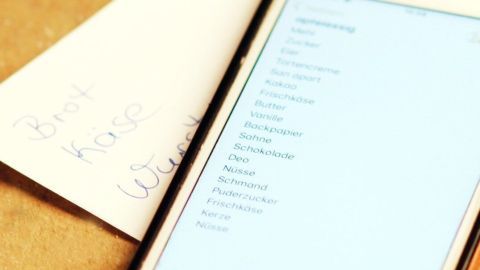 Brot
Käse
Wurst
apfelessig
Mehl
Zucker
Eier
Tortencreme
San apart
Kakao
Frischkäse
Butter
Vanille
Backpapier
Sahne
Schokolade
Deo
Nüsse
Schmand
Puderzucker
Frischkäse
Kerze
Nüsse